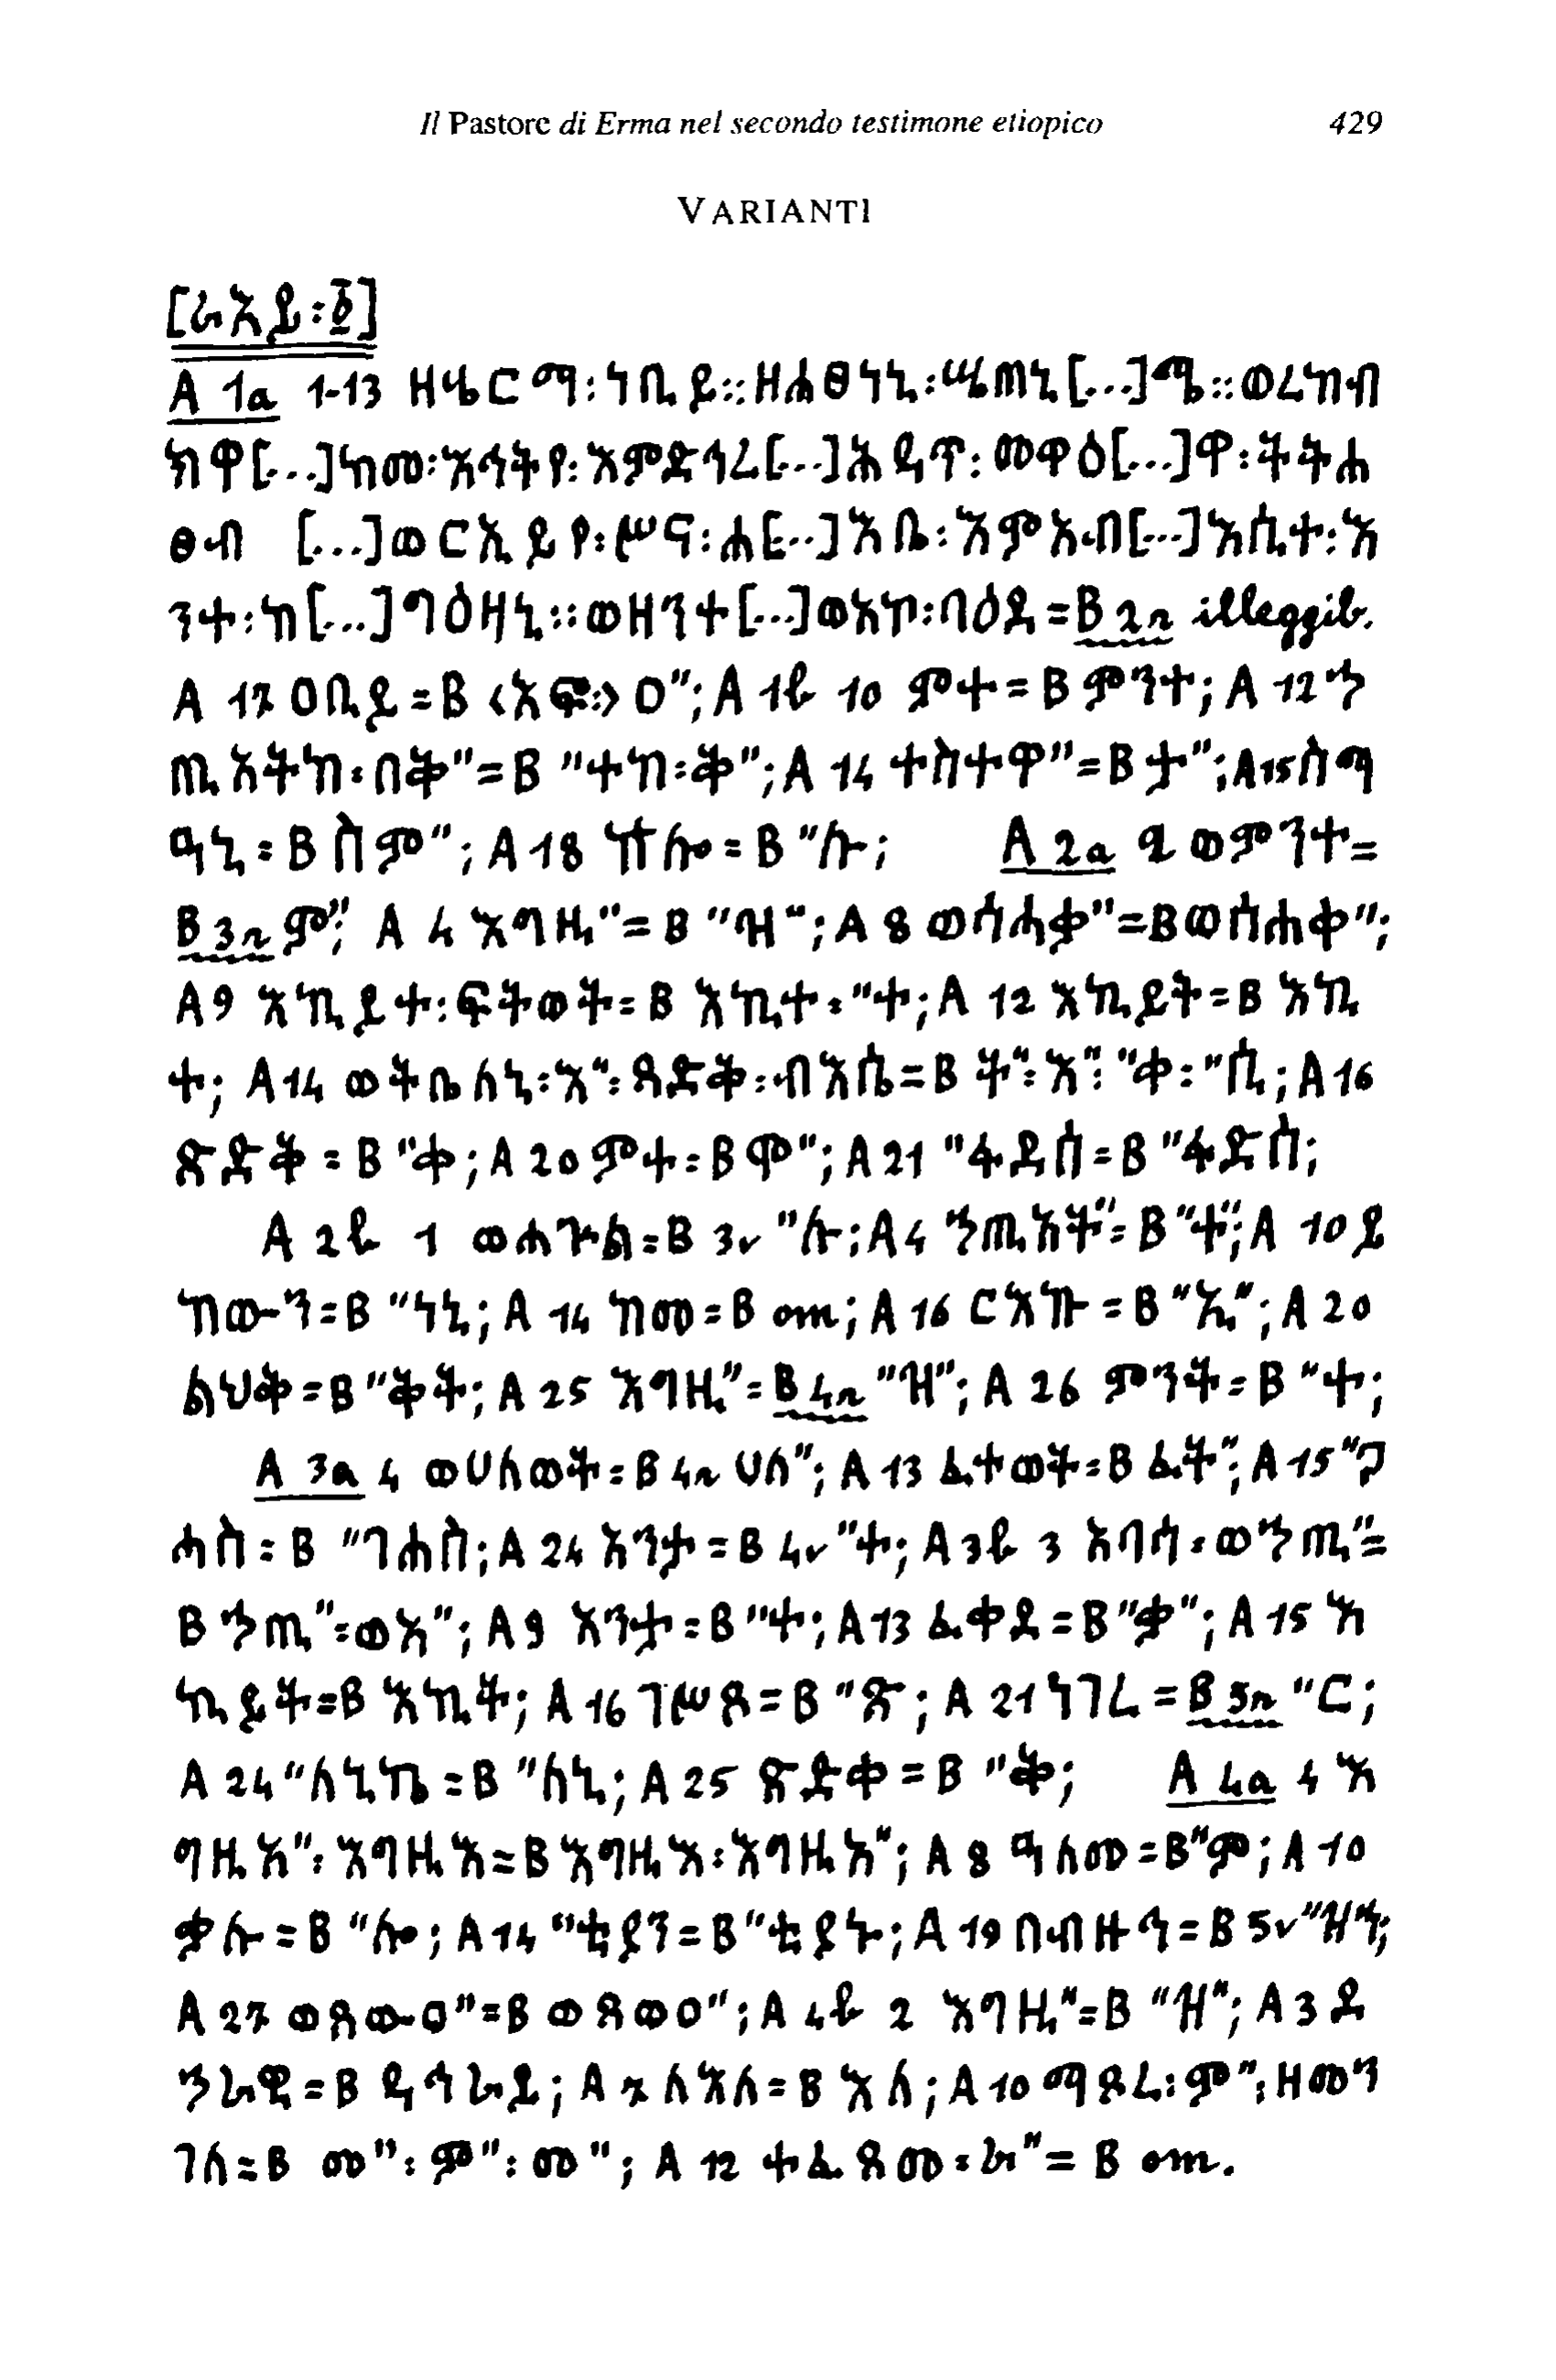 Il Pastore di Erma nel secondo testimone etiopico 429
VARIANTI
[ራእይ፡፩]
A 1a 1-13 ዘሄርማ፡ነቢይ።ዘሐፀነኒ፡ሤጠኒ[...]ሜ።ወረከብ
ክዋ[...]ከመ፡እኅትየ፡እምድኅረ[...]ሕዳጥ፡መዋዕ[...]ዋ፡ትትሐ
ፀብ [...]ወርኢይየ፡ሥና፡ሐ[...]እቤ፡እምእብ[...]እሲተ፡እ
ንተ፡ከ[...]ግዕዛኒ።ወዘንተ[...]ወአኮ፡ባዕደ=B 2r illeggib.
A 17 ዐቢይ=B <እፎ፡> ዐ"; A 1b 10 ምተ=B ምንተ; A 12 ኅ
ጢአትከ፡በቅ"=B "ተከ፡ቅ"; A 14 ተስተዋ"=B ታ"; A 15 ስማ
ዓኒ=B ስም"; A 18 ኵሎ=B "ሉ; A 2a 2 ወምንተ=
B 3r ም"; A 4 እግዚ"=B "ዝ"; A 8 ወሳሓቃ"=B ወሰሐቀ";
A 9 እኪይተ፡ፍትወት=B እኪተ፡"ተ; A 12 እኪይት=B እኪ
ት; A 14 ወትቤለኒ፡እ"፡ጻድቅ፡ብእሴ=B ት"፡እ"፡"ቀ፡"ሲ; A 16
ጽድቅ=B "ቀ; A 20 ምተ=B ሞ"; A 21 "ፋደስ=B "ፋድስ;
A 2b 1 ወሐጕል=B 3v "ሉ; A 4 ኃጢአት"=B "ተ"; A 10 ይ
ከውን=B "ነኒ; A 14 ከመ=B om; A 16 ርእኩ=B "ኢ"; A 20
ልህቅ=B "ቅት; A 25 እግዚ"=B 4r "ዝ"; A 26 ምንት=B "ተ;
A 3a 4 ወሀለወት=B 4r ሀለ"; A 13 ፈተወት=B ፈት"; A 15 "ጋ
ሓስ=B "ገሐስ; A 24 እንታ=B 4v "ተ; A 3b 3 አባሳ፡ወኃጢ"=
B ኃጢ"፡ወአ"; A 9 እንታ=B "ተ; A 13 ፈቀደ=B "ቃ"; A 15 እ
ኪይት=B እኪት; A 16 ገሥጸ=B "ጽ; A 21 ነገረ=B 5r "ር;
A 24 "ለኒኬ=B "ለኒ; A 25 ጽድቀ=B "ቅ; A 4a 4 እ
ግዚአ"፡እግዚእ=B እግዚእ፡እግዚአ"; A 8 ዓለመ=B "ም; A 10
ቃሉ=B "ሎ; A 14 "ቲያን=B "ቲያኑ; A 19 በብዙኅ=B 5v "ዝኅ;
A 27 ወጸውዐ"=B ወጸወዐ"; A 4b 2 እግዚ"=B "ዝ"; A 3 ደ
ኃራዊ=B ዳኅራይ; A 7 ለእለ=B እለ; A 10 ማጸረ፡ም"፡ዘመን
ገለ=B መ"፡ም"፡መ"; A 12 ተፈጸመ፡ራ"=B om.